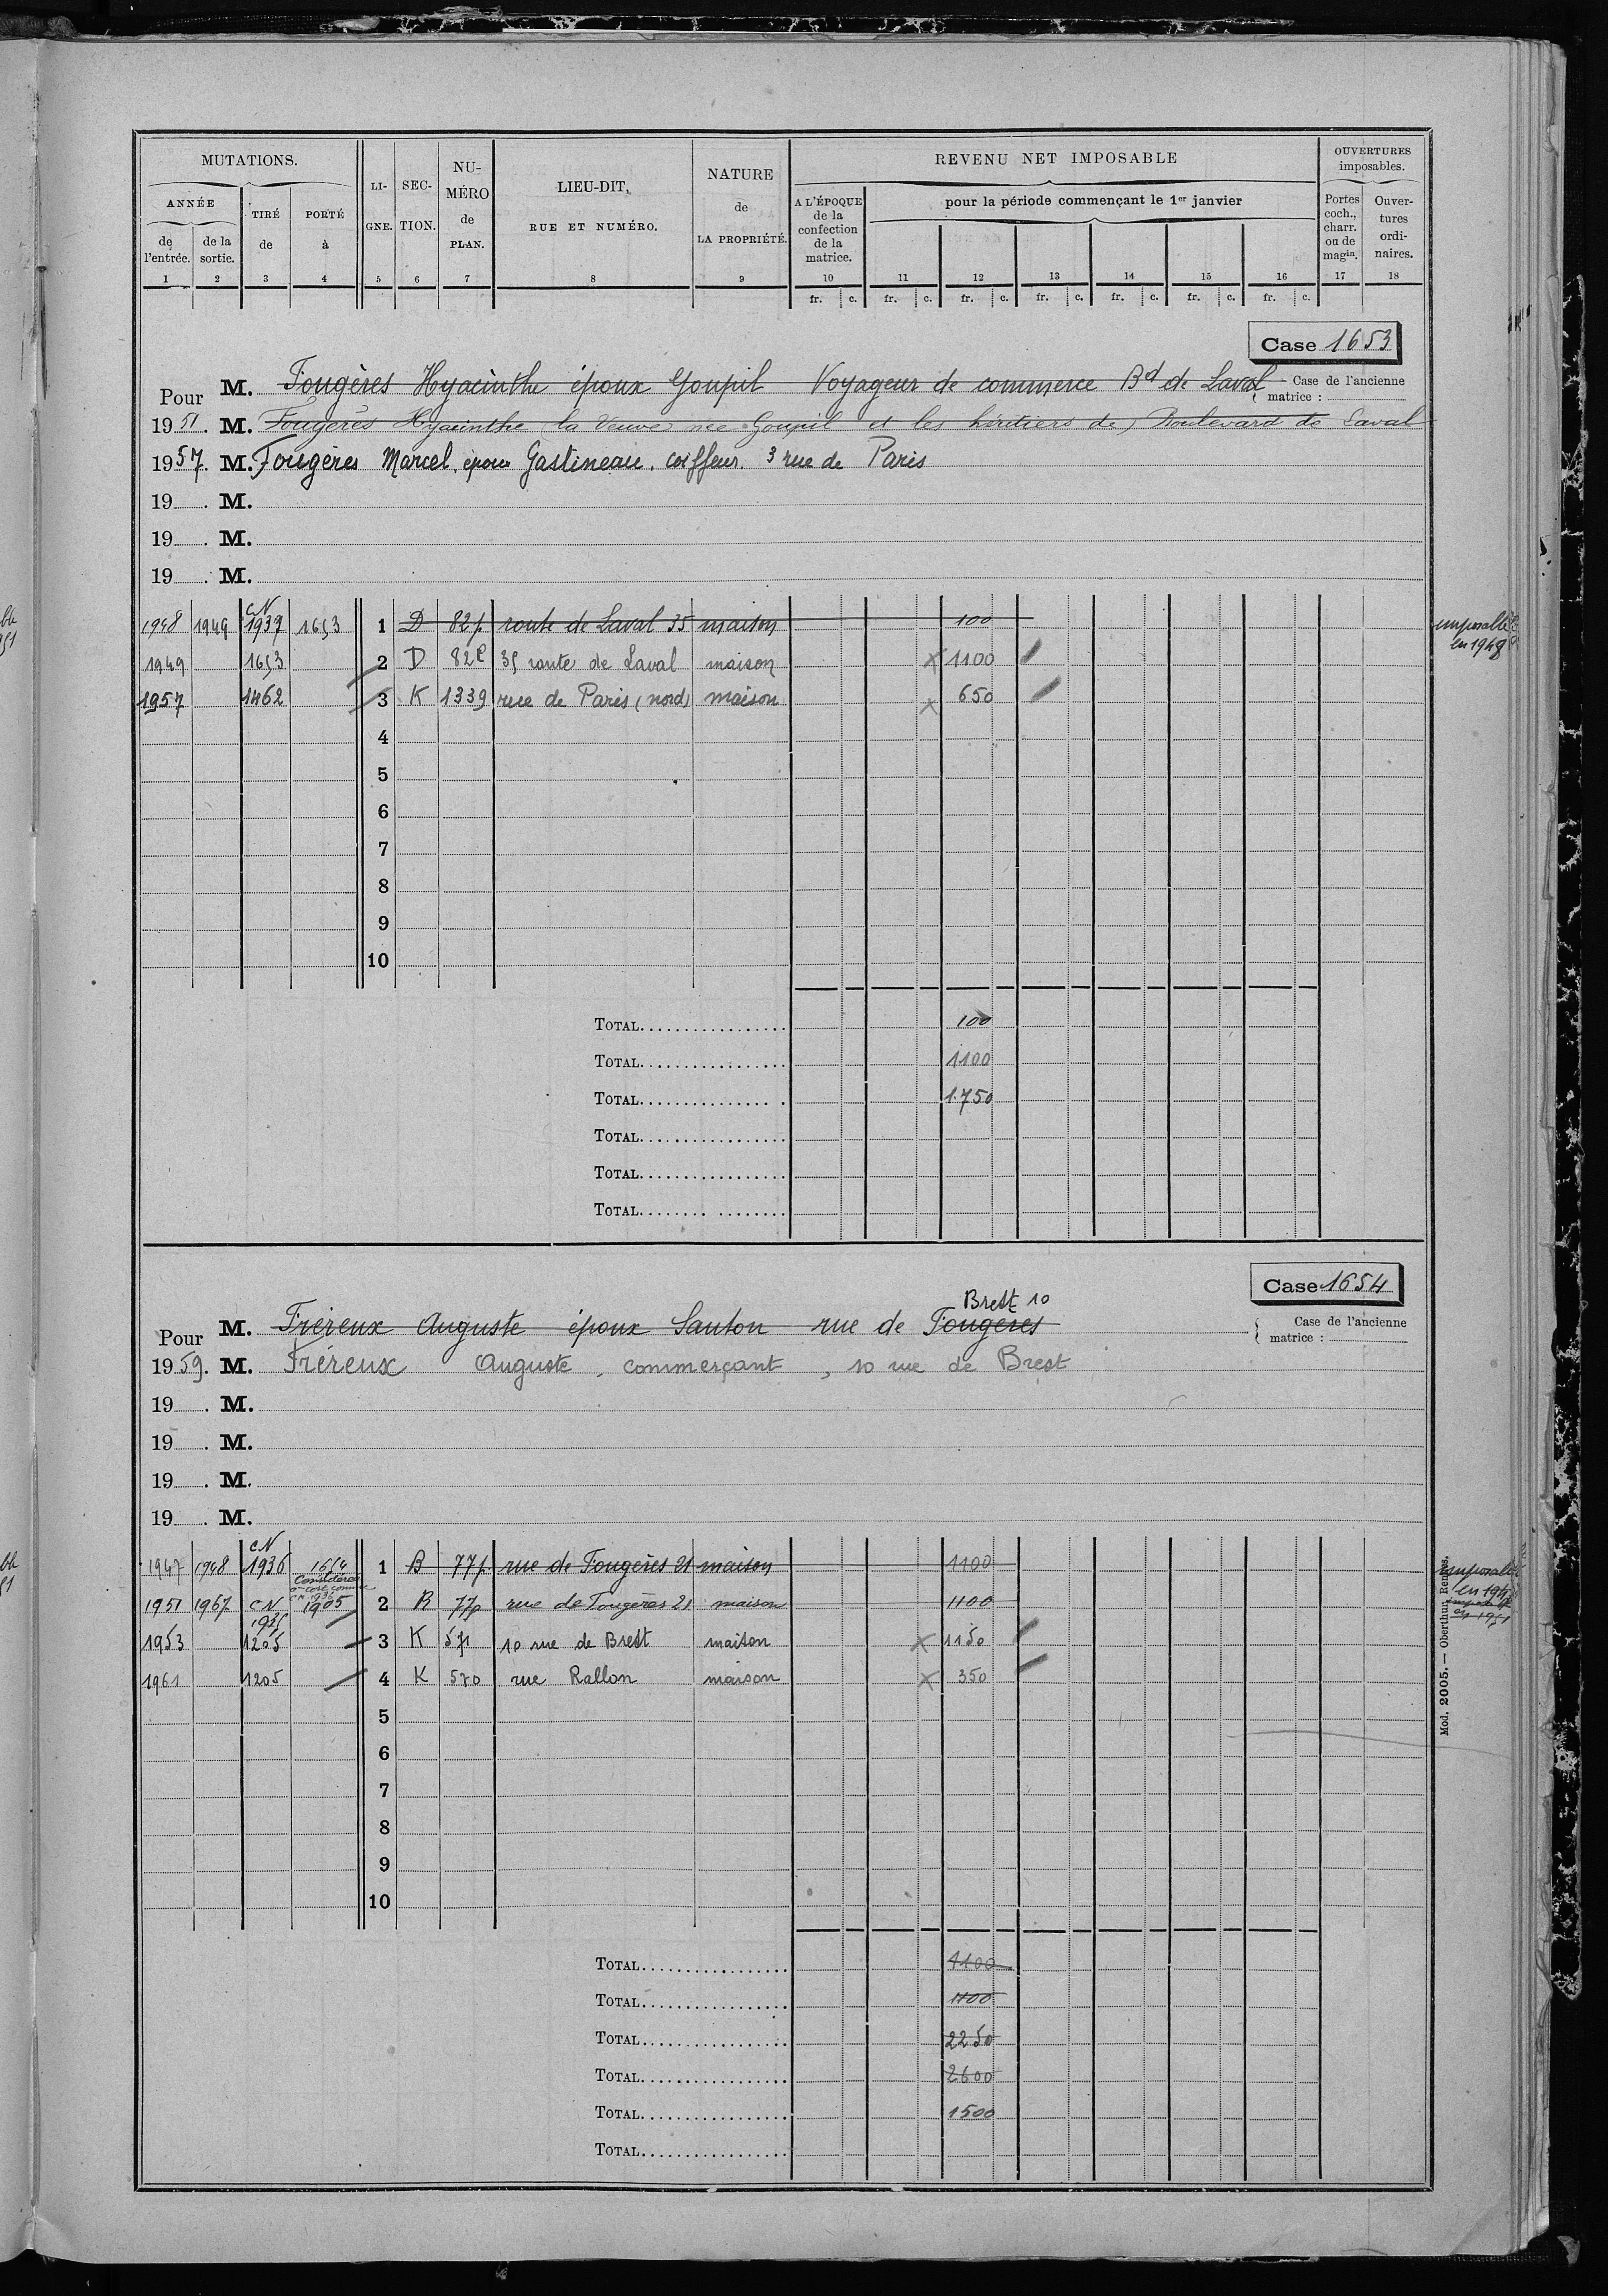 MUTATIONS. LI- SEC- NU- LIEU-DIT, NATURE REVENU NET IMPOSABLE OUVERTURES
imposables.
ANNÉE TIRÉ PORTÉ GNE. TION. MÉRO RUE ET NUMÉRO. de A L'ÉPOQUE pour la période commençant le 1er janvier Portes Ouver-
de de la de à de LA PROPRIÉTÉ. de la coch., tures
l'entrée. sortie. PLAN. confection charr. ordi-
de la ou de naires.
matrice. magin.
1 2 3 4 5 6 7 8 9 10 11 12 13 14 15 16 17 18
fr. c. fr. c. fr. c. fr. c. fr. c. fr. c. fr. c.
Case 1653
Pour M. Fougères Hyacinthe époux Goupil Voyageur de commerce Bd de Laval Case de l'ancienne
matrice :
1951. M. Fougères Hyacinthe (la Veuve née Goupil et les héritiers de) Boulevard de Laval
1957. M. Fougères Marcel, époux Gastineau. coiffeur. 3 rue de Paris
19 . M.
19 . M.
19 . M.
CN
1948 1949 1937 1653 1 D 82p route de Laval 35 maison 100 imposable
en 1948
1949 1653 2 D 82P 35 route de Laval maison x 1100
1957 1462 3 K 1339 rue de Paris (nord) maison x 650
4
5
6
7
8
9
10
TOTAL 100
TOTAL 1100
TOTAL 1.750
TOTAL
TOTAL
TOTAL
Case 1654
Brest 10
Pour M. Fréreux Auguste époux Santon rue de Fougères Case de l'ancienne
matrice :
1959. M. Fréreux Auguste, commerçant, 10 rue de Brest
19 . M.
19 . M.
19 . M.
19 . M.
CN
1947 1948 1936 1654 1 B 77p rue de Fougères 21 maison 1100
en 194
1951 1967 CN 1905 2 B 77p rue de Fougères 21 maison 1100
1935
en 1951
1953 1205 3 K 571 10 rue de Brest maison x 1150
1961 1205 4 K 570 rue Rallon maison x 350
5
6
7
8
9
10
TOTAL 1100
TOTAL 1100
TOTAL 2250
TOTAL 2600
TOTAL 1500
TOTAL
Mod. 2005. — Oberthur, Rennes.